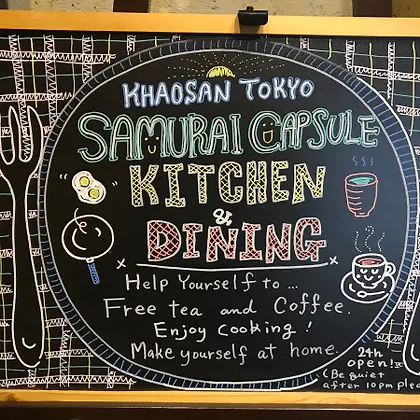 KHAOSAN TOKYO
SAMURAI CAPSULE
KITCHEN
&
DINING
Help Yourself to ...
Free tea and Coffee.
Enjoy Cooking !
Make yourself at home.
24h
open!!
(Be quiet
after 10pm